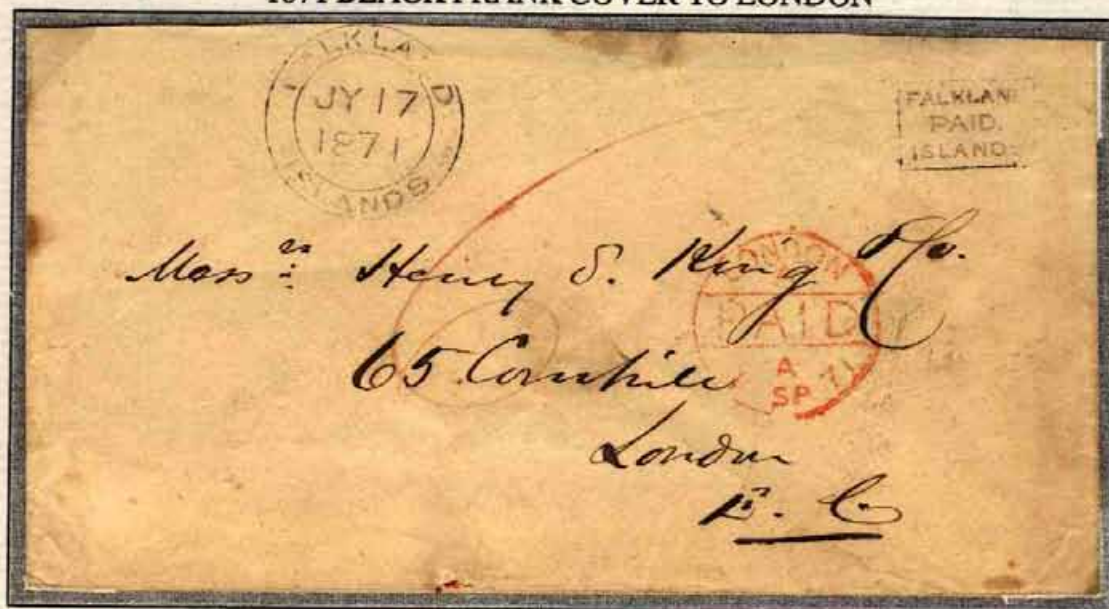 FALKLAND
JY 17
1871
ISLANDS
FALKLAN
PAID.
ISLAND
Messrs Henry S. King & Co.
65 Cornhill
London
E. C
LONDON
PAID
A
SP 71